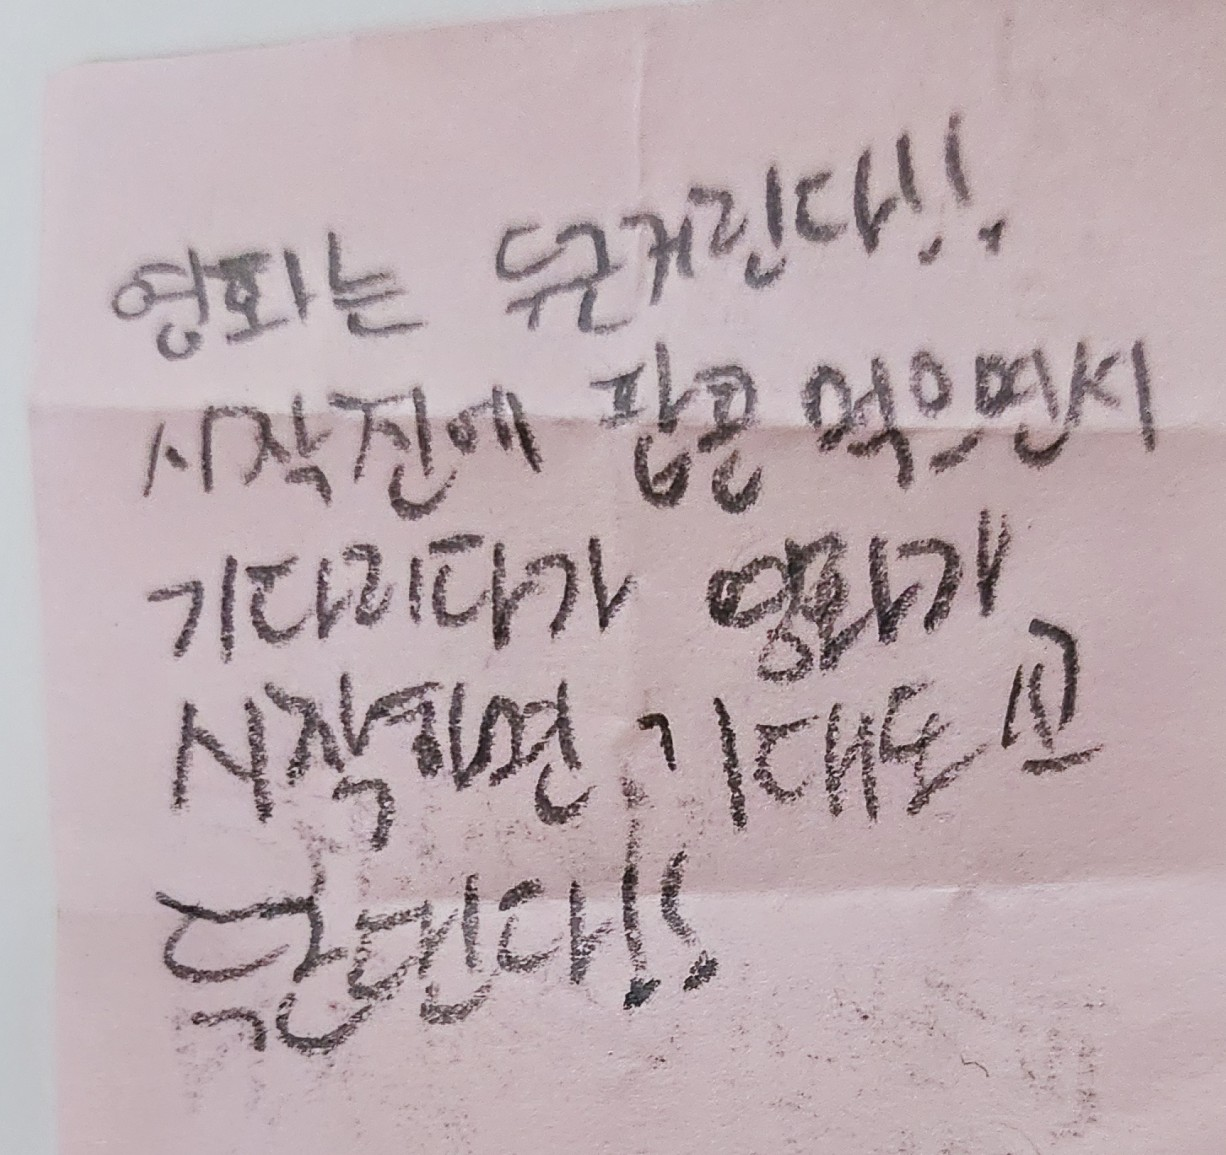 영화는 두근거린다!!
시작전에 팝콘 먹으면서
기다리다가 영화가
시작되면 기대도 고
된다!!